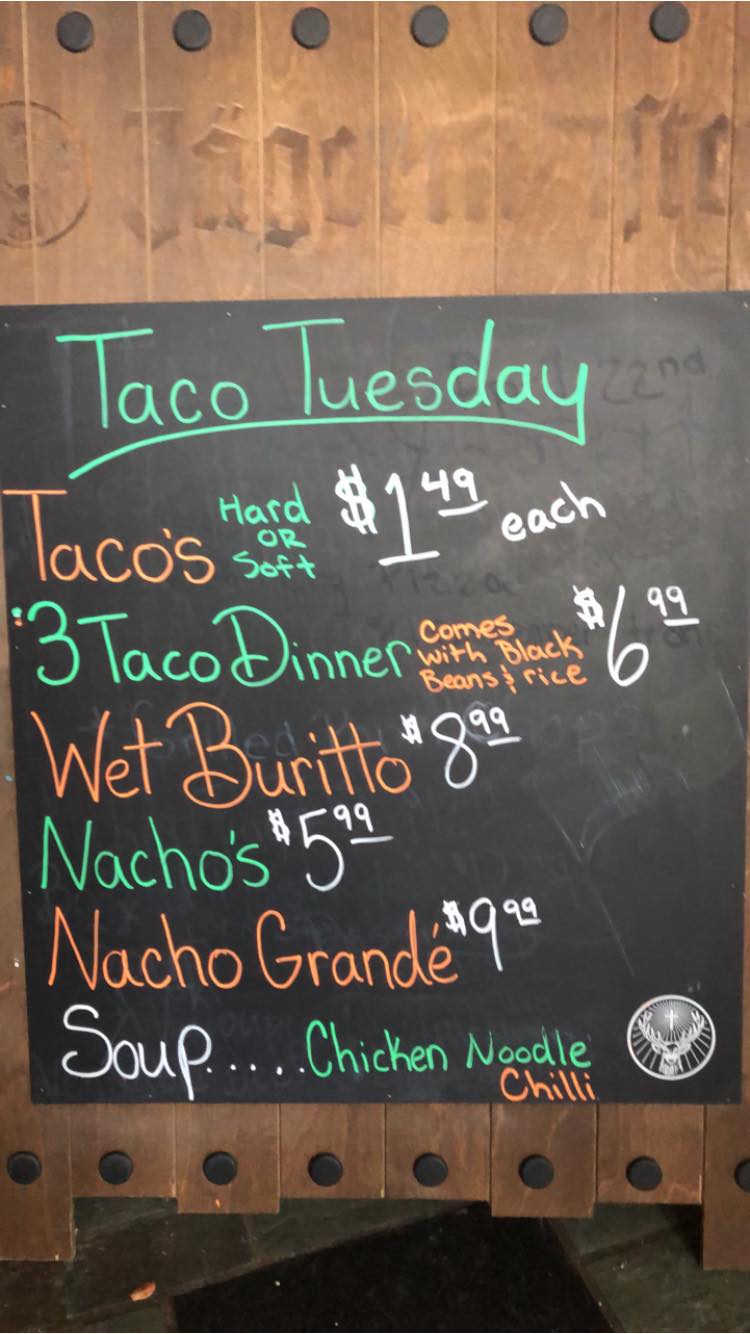 Jägermeiste
Taco Tuesday
22nd
Taco's Hard OR Soft $1.49 each
3 Taco Dinner Comes with Black Beans & rice $6.99
Wet Buritto $8.99
Nacho's $5.99
Nacho Grandé $9.99
Soup.....Chicken Noodle
Chilli